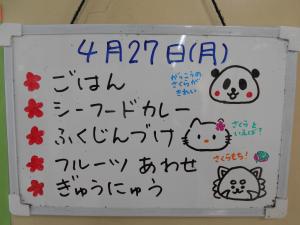 4月27日(月)
ごはん
がっこうの
さくらが
きれい
シーフードカレー
ふくじんづけ
さくらと
いえば?
フルーツ あわせ
さくらもち!
ぎゅうにゅう